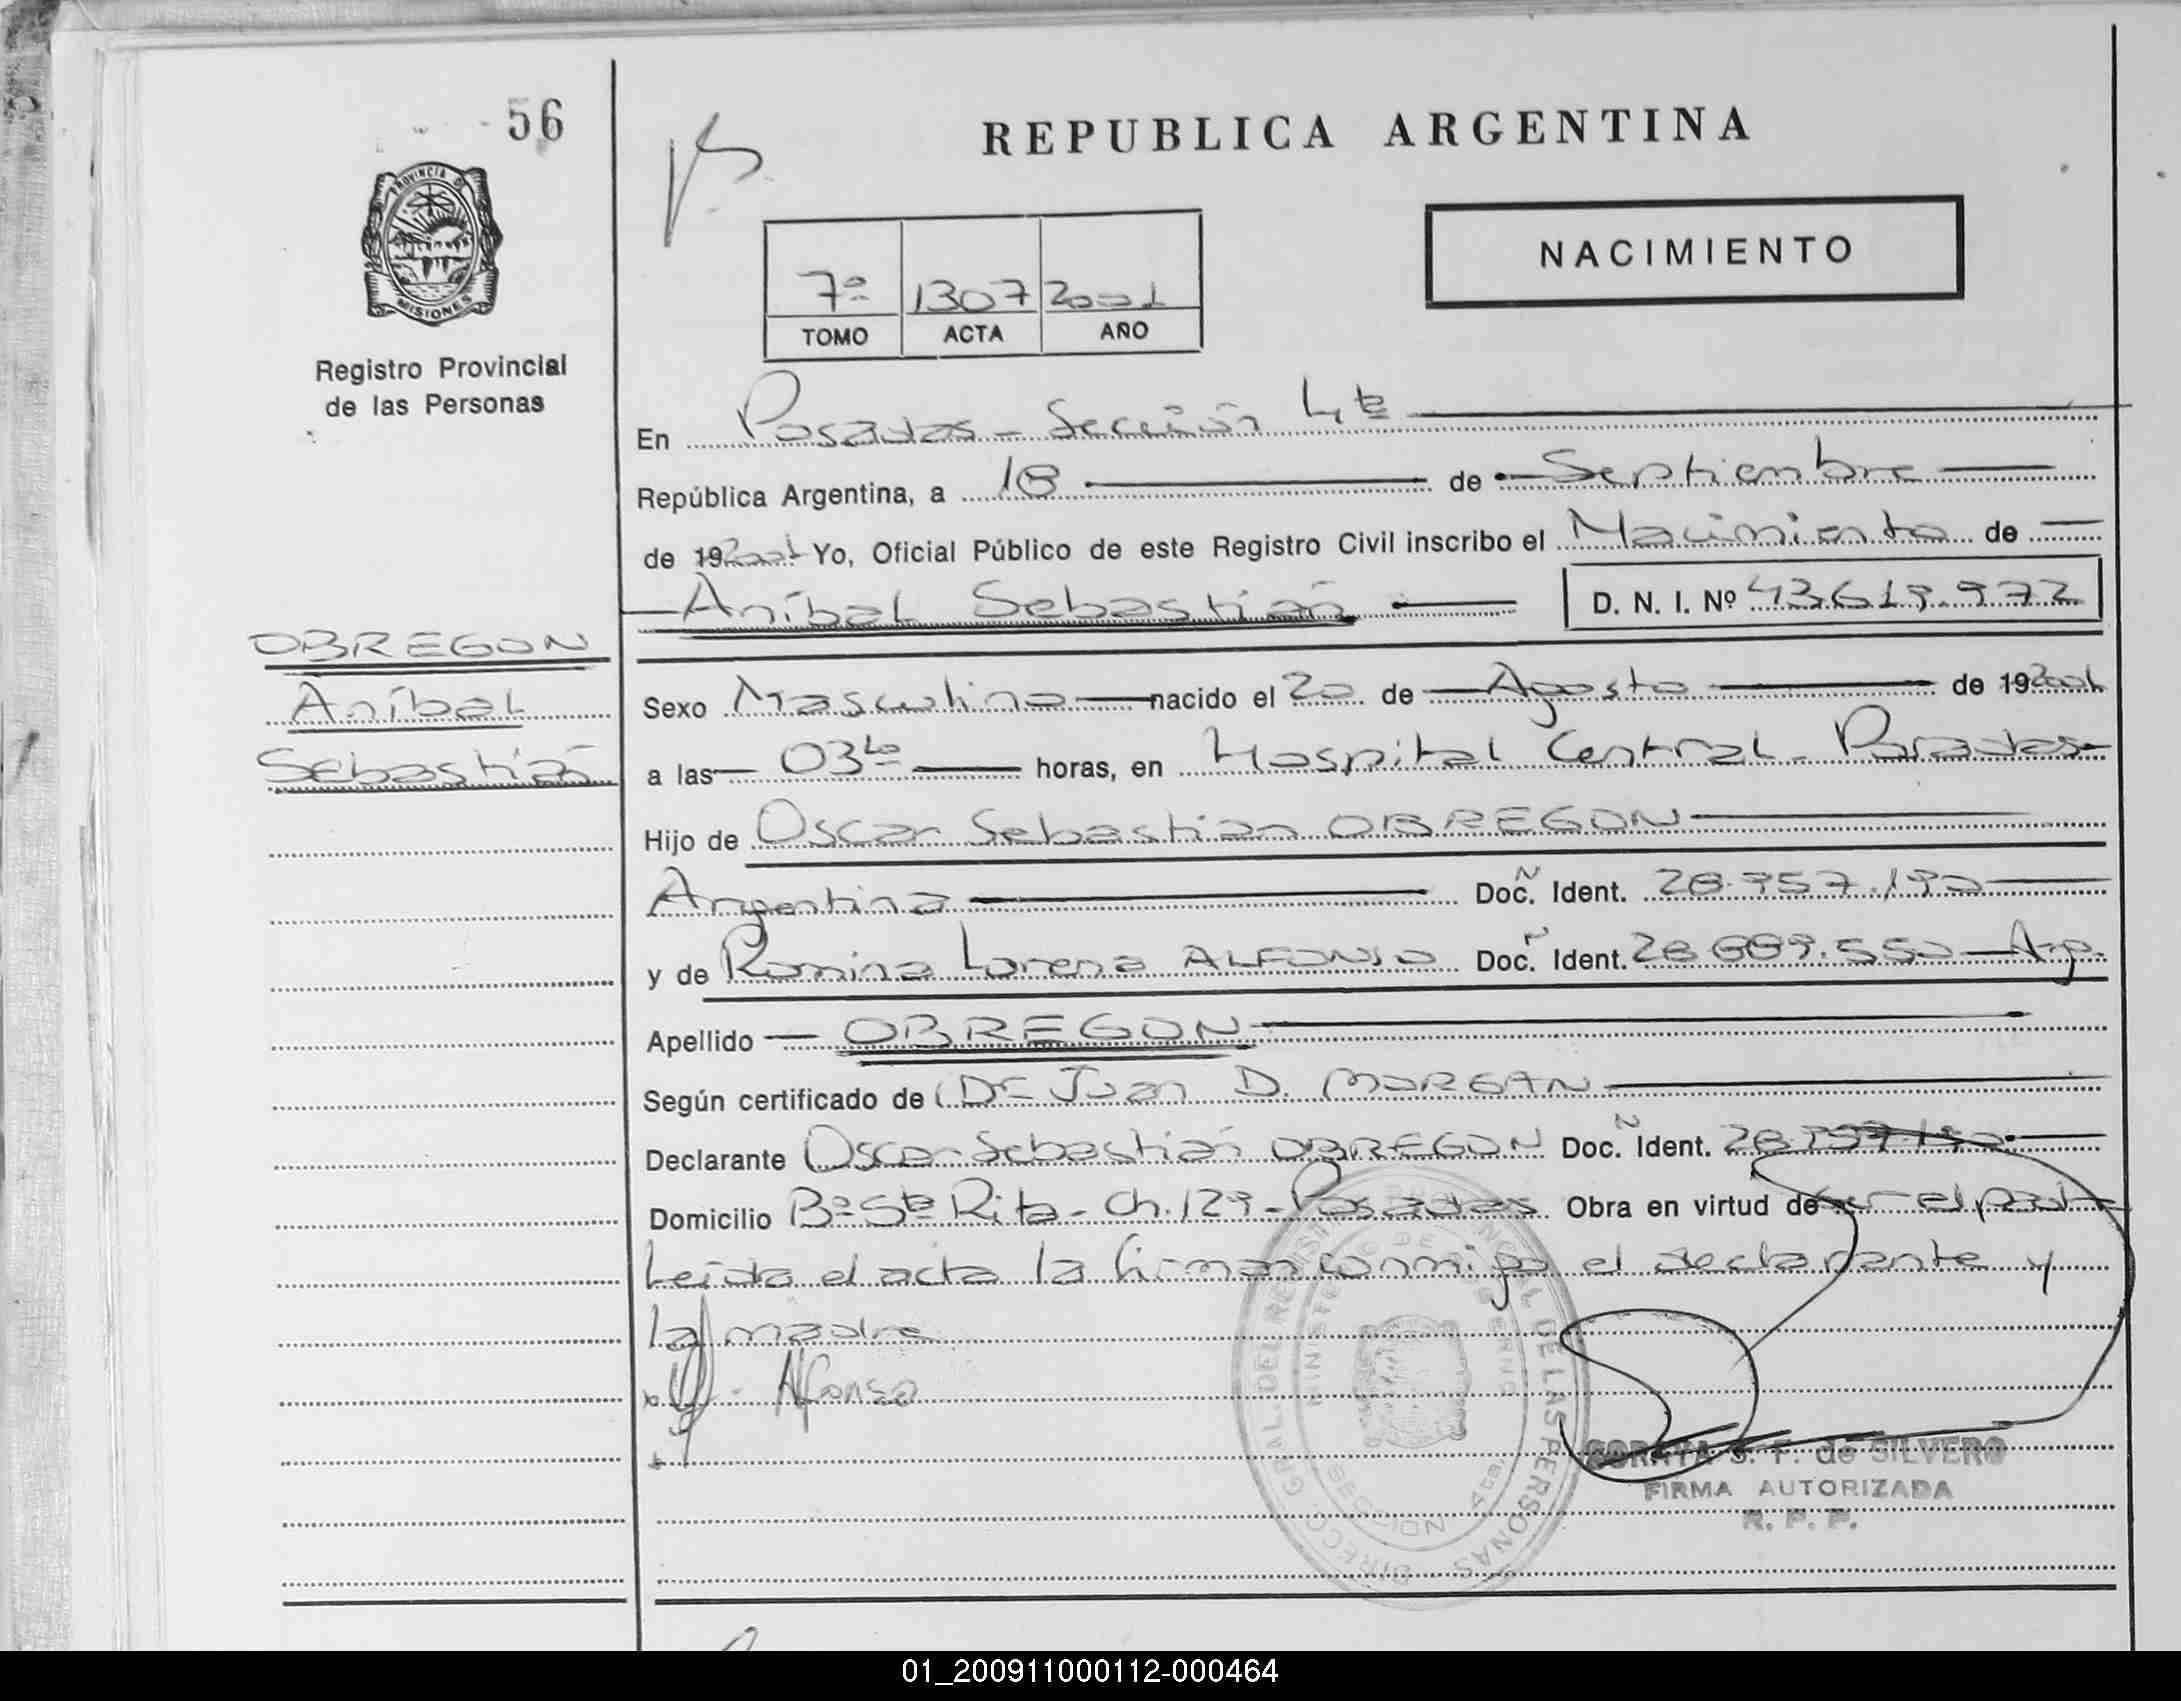 56
REPUBLICA ARGENTINA
PROVINCIA DE
MISIONES
Registro Provincial
de las Personas
NACIMIENTO
7º 1307 2001
TOMO ACTA AÑO
En Posadas - Sección 4ta
República Argentina, a 18 de Septiembre
de 192001 Yo, Oficial Público de este Registro Civil inscribo el Nacimiento de
Aníbal Sebastián D. N. I. Nº 43.619.972
OBREGON
Aníbal
Sebastián
Sexo Masculino nacido el 20 de Agosto de 192001
a las 03 horas, en Hospital Central - Posadas
Hijo de Oscar Sebastian OBREGON
Argentina Doc. Ident. 28.757.190
y de Romina Lorena ALFONSO Doc. Ident. 28.689.550 - Arg.
Apellido OBREGON
Según certificado de Dr Juan D. MORGAN
Declarante Oscar Sebastián OBREGON Doc. Ident. 28.757.190
Domicilio Bº Sta Rita - Ch. 129 - Posadas Obra en virtud de ser el padre
Leída el acta la firman conmigo el declarante y
la madre
Alfonso
SORAYA S. F. de SILVERO
FIRMA AUTORIZADA
R. P. P.
DIRECC. GRAL. DEL REGISTRO PROVINCIAL DE LAS PERSONAS
MINISTERIO DE GOBIERNO
SECCION 4ta.
01_200911000112-000464